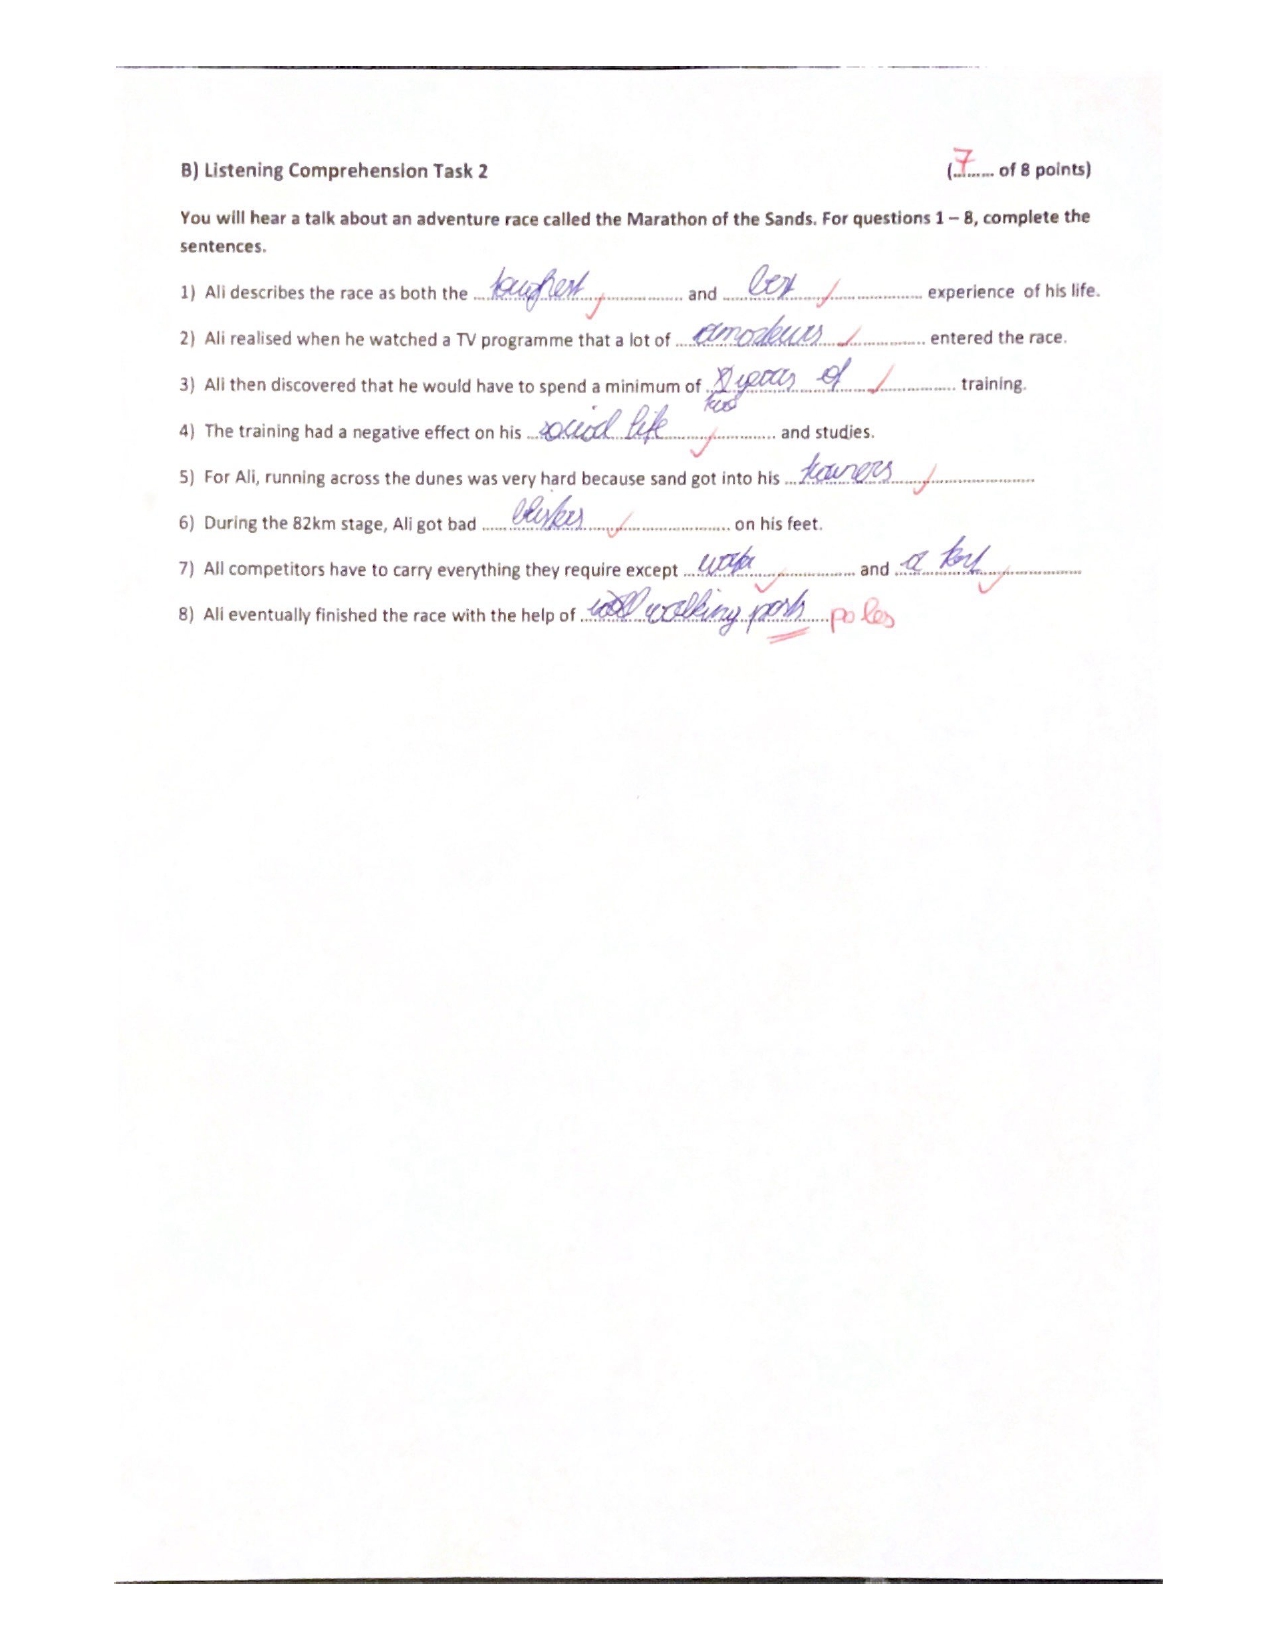 B) Listening Comprehension Task 2 (7 of 8 points)
You will hear a talk about an adventure race called the Marathon of the Sands. For questions 1 – 8, complete the
sentences.
1) Ali describes the race as both the toughest and best experience of his life.
2) Ali realised when he watched a TV programme that a lot of amateurs entered the race.
3) Ali then discovered that he would have to spend a minimum of years of training.
4) The training had a negative effect on his social life and studies.
5) For Ali, running across the dunes was very hard because sand got into his trainers
6) During the 82km stage, Ali got bad blisters on his feet.
7) All competitors have to carry everything they require except water and a tent
8) Ali eventually finished the race with the help of walking posts poles